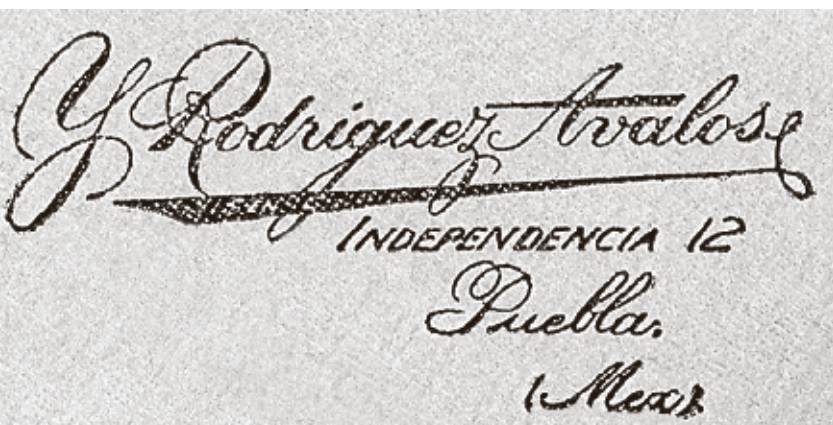 Y Rodriguez Avalos
INDEPENDENCIA 12
Puebla.
(Mex)